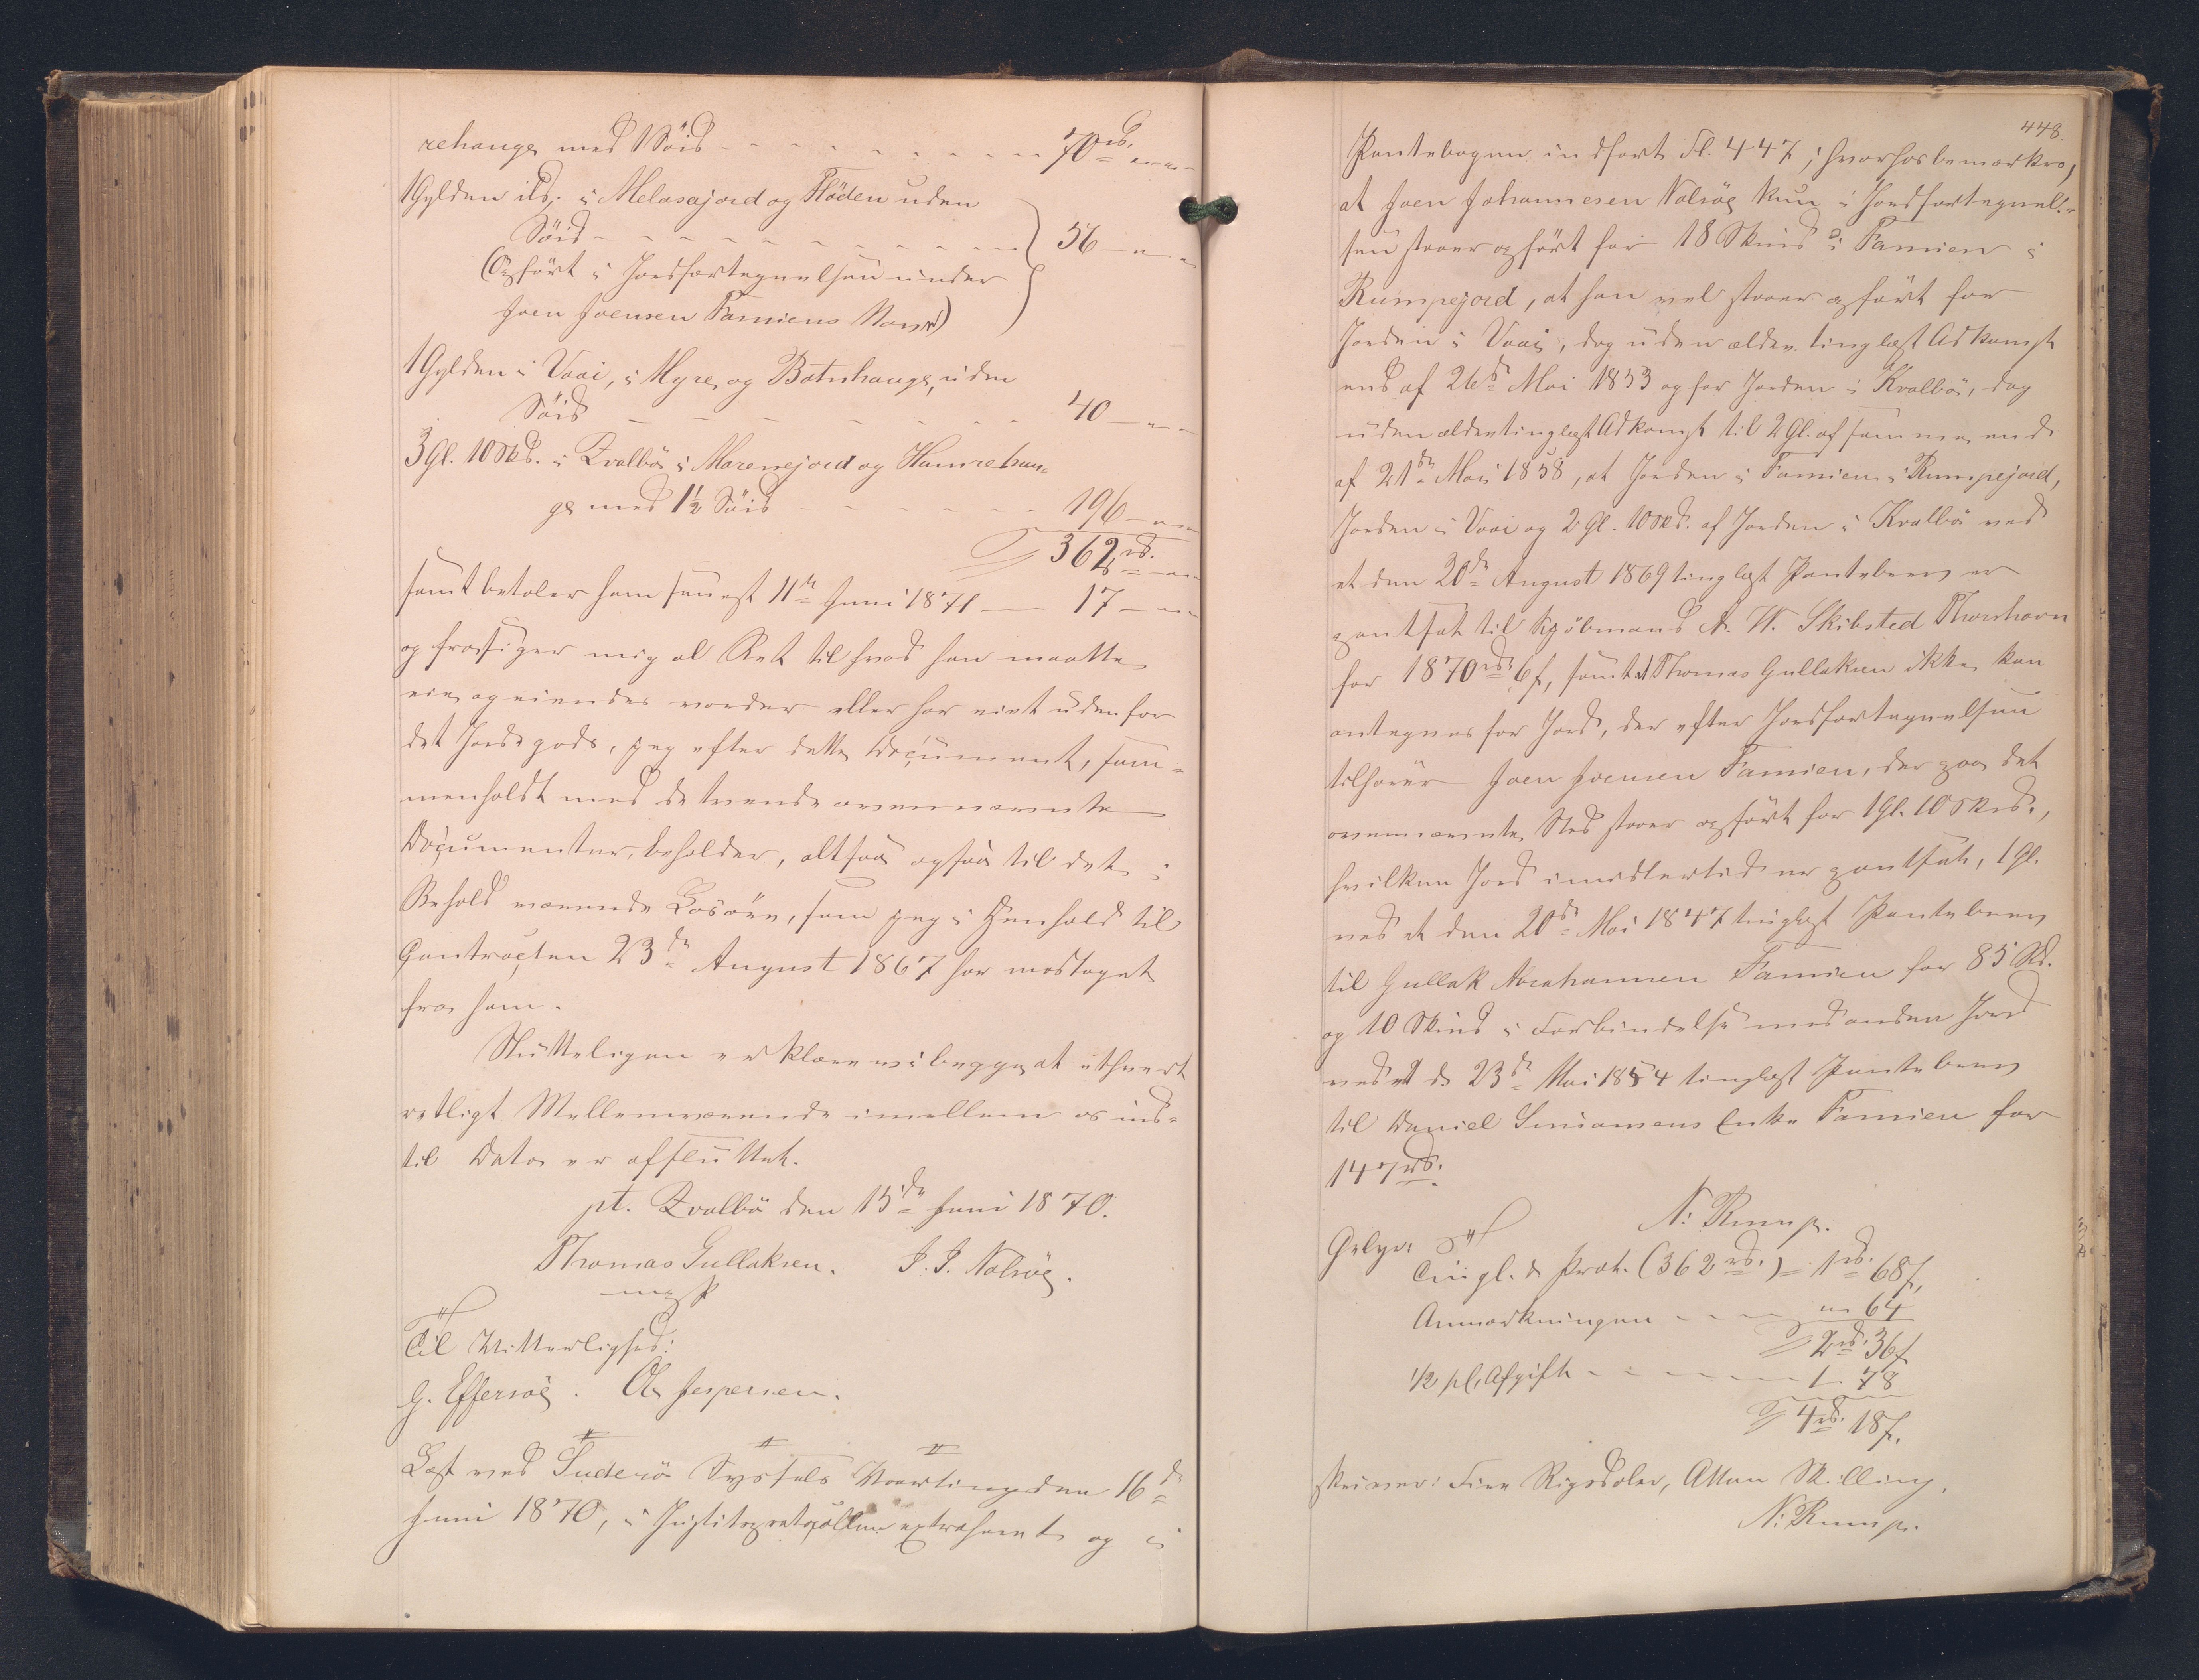 rehauge med 1 Söid - - - - - - - - - - 70 rd. " "
1 Gylden ibd. i Melasajord og Flöden uden
Söid - - - - - - - - - - 56 - " - "
(Opført i Jordfortegnelsen under
Joen Joensen Famiens Navn)
1 Gylden i Vaai, i Myre og Botnhauge, uden
Söid - - - - - - - 40 - " -
3 Gl. 10 Skd. i Qvalbö i Marenejord og Hamrehau-
ge med 1½ Söid - - - - - - 196 - " -
362 rd. - "
samt betaler ham senest 11te Juni 1871 — 17 - " -
og frasiger mig al Ret til hvad han maatte
eie og eiendes vorder eller har eiet udenfor
det Jordegods, jeg efter dette Document, sam-
menholdt med de tvende ovennævnte
Documenter, beholder, altsaa ogsaa til det i
Behold værende Losöre, som jeg i Henhold til
Contracten 23de August 1867 har modtaget
fra ham.
Slutteligen erklære vi begge, at ethvert
retligt Mellemværende imellem os ind-
til Dato er afsluttet.
pt. Qvalbö den 15de Juni 1870.
Thomas Gullaksen. J. J. Nolsöe.
Til Vitterlighed:
G. Effersöe. Ole Jespersen.
Læst ved Suderö Syssels Vaarting den 16de
Juni 1870, i Justitsprotocollen extraheret og i
448.
Pantebogen indført Fl. 447, hvorhos bemærkes,
at Joen Johannesen Nolsöe kun i Jordfortegnel-
sen staaer opført for 18 Skind i Famien i
Rumpejord, at han vel staaer opført for
Jorden i Vaai, dog uden ældre tinglæst Adkomst
end af 26de Mai 1853 og for Jorden i Kvalbö, dog
uden ældre tinglæst Adkomst til 2 Gl. af samme end
af 21de Mai 1858, at Jorden i Famien i Rumpejord,
Jorden i Vaai og 2 Gl. 10 Skd. af Jorden i Kvalbö ved
et den 20de August 1869 tinglæst Pantebrev er
pantsat til Kjöbmand H. Skibsted Thorshavn
for 1870 rd. 6 ß, samt at Thomas Gullaksen ikke kan
antegnes for Jord, der efter Jordfortegnelsen
tilhører Joen Joensen Famien, der paa det
ovennævnte Sted staaer opført for 1 Gl. 10 Skd.,
hvilken Jord imidlertid er pantsat, 1 Gl.
ved et den 20de Mai 1847 tinglæst Pantebrev
til Gullak Abrahamsen Famien for 85 Rd.
og 10 Skind i Forbindelse med anden Jord
ved et d. 23de Mai 1854 tinglæst Pantebrev
til Daniel Simonsens Enke Famien for
147 rd.
N. Rump.
Gebyr:
Tingl. & Prot. (362 rd.) = 1 rd. 68 ß,
Anmærkningen - - - - " 64
2 rd. 36 ß
1/2 pC. Afgift - - - - - - 1 78
4 rd. 18 ß.
skriver: Fire Rigsdaler, Atten Skilling.
N. Rump.